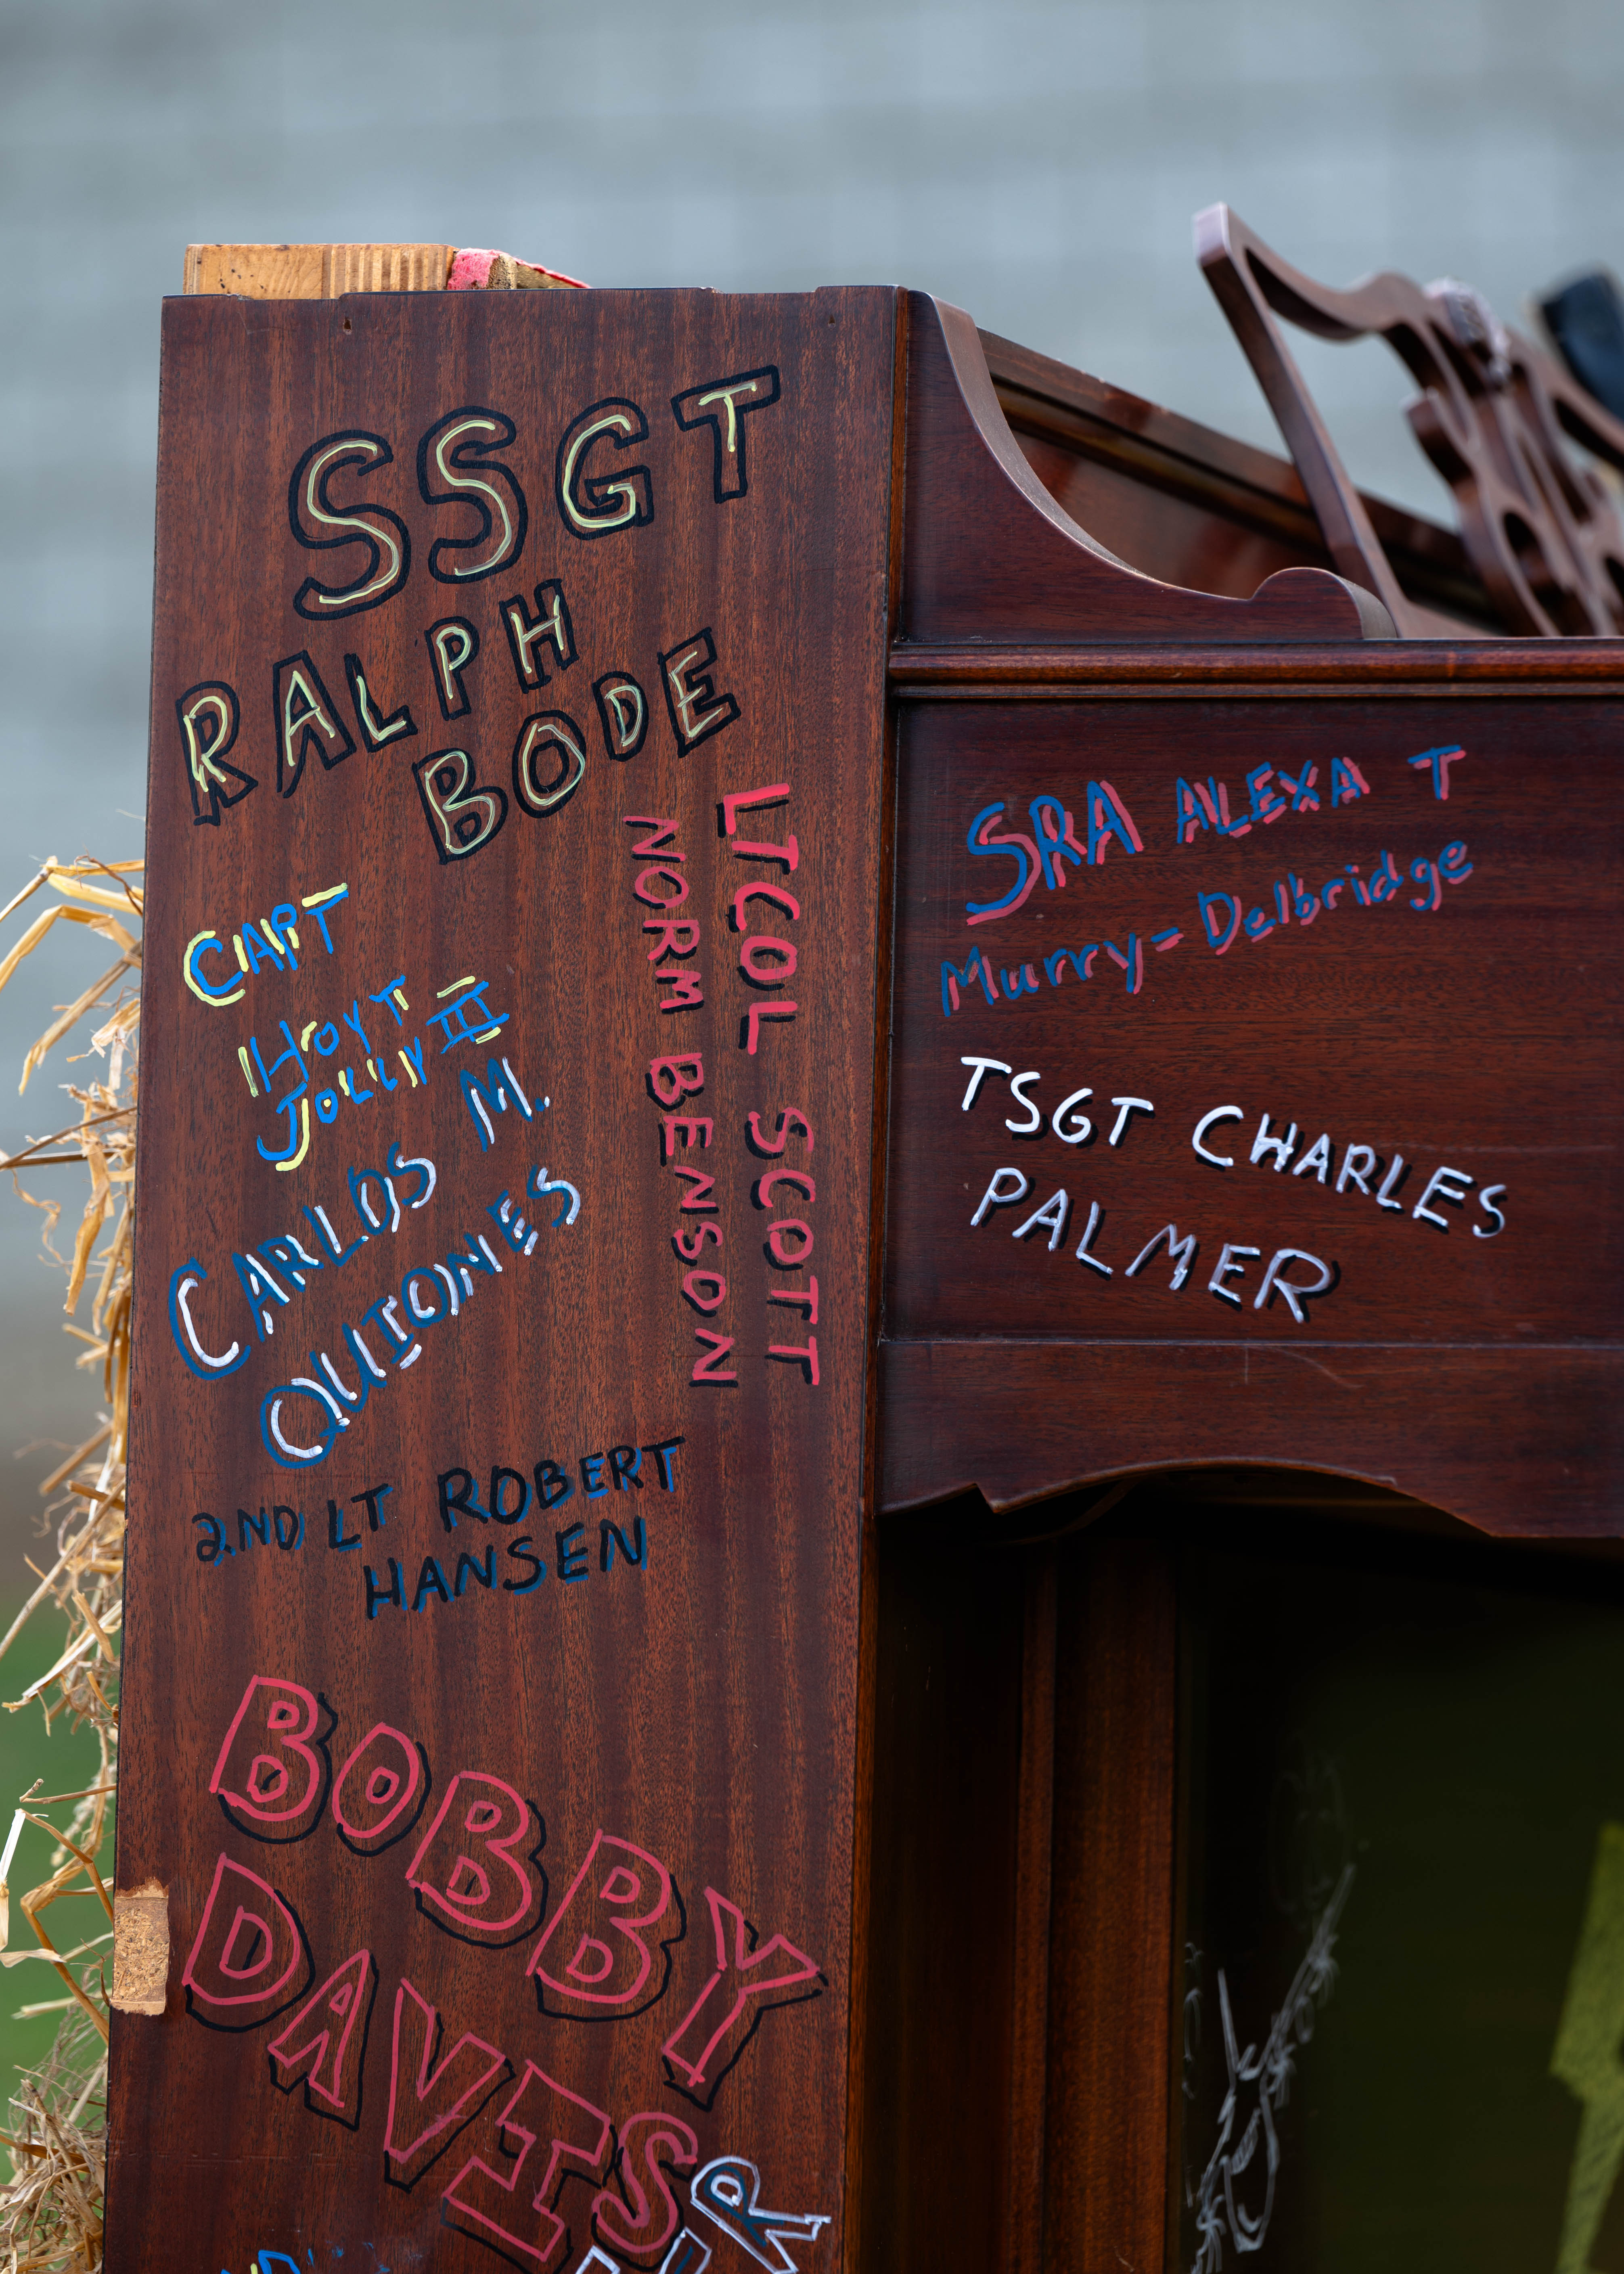 SSGT
RALPH
BODE
CAPT
HOYT
JOLLY III
CARLOS M.
QUIONES
LTCOL SCOTT
NORM BENSON
2ND LT ROBERT
HANSEN
BOBBY
DAVIS
SRA ALEXA T
Murry-Delbridge
TSGT CHARLES
PALMER